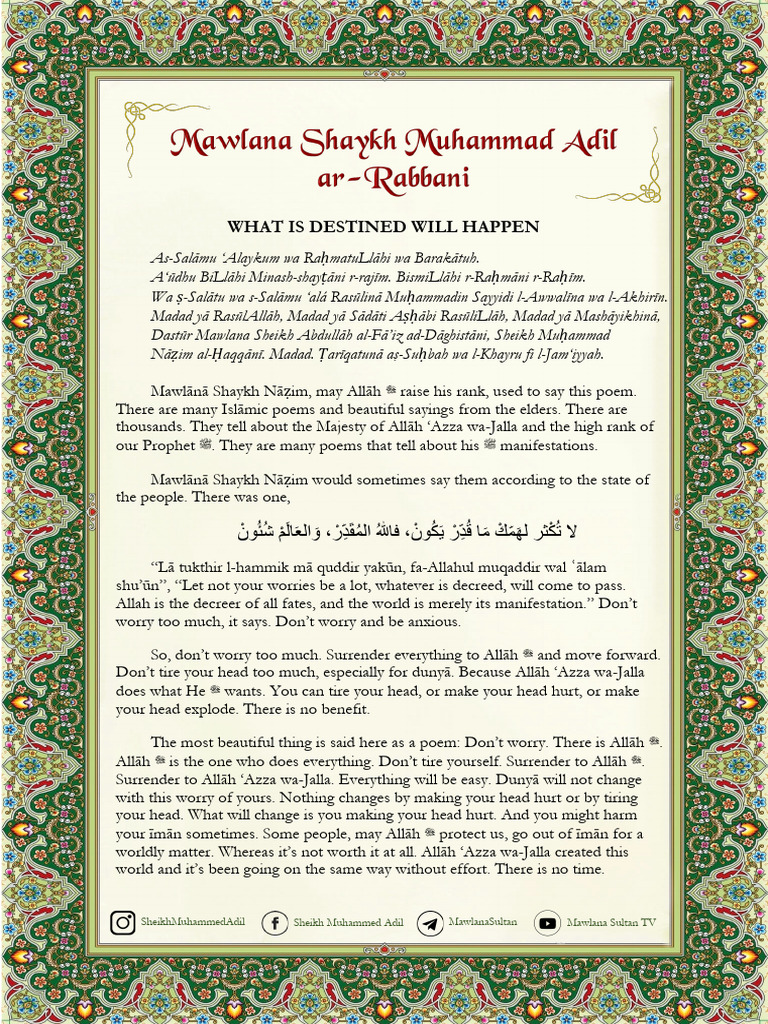 Mawlana Shaykh Muhammad Adil
ar-Rabbani
WHAT IS DESTINED WILL HAPPEN
As-Salāmu ‘Alaykum wa RaḥmatuLlāhi wa Barakātuh.
A‘ūdhu BiLlāhi Minash-shayṭāni r-rajīm. BismiLlāhi r-Raḥmāni r-Raḥīm.
Wa ṣ-Salātu wa s-Salāmu ‘alá Rasūlinā Muḥammadin Sayyidi l-Awwalīna wa l-Akhirīn.
Madad yā RasūlAllāh, Madad yā Sādāti Aṣḥābi RasūliLlāh, Madad yā Mashāyikhinā,
Dastūr Mawlana Sheikh Abdullāh al-Fā’iz ad-Dāghistāni, Sheikh Muḥammad
Nāẓim al-Ḥaqqānī. Madad. Ṭarīqatunā aṣ-Suḥbah wa l-Khayru fi l-Jam‘iyyah.
Mawlānā Shaykh Nāẓim, may Allāh ﷻ raise his rank, used to say this poem.
There are many Islāmic poems and beautiful sayings from the elders. There are
thousands. They tell about the Majesty of Allāh ‘Azza wa-Jalla and the high rank of
our Prophet ﷺ. They are many poems that tell about his ﷺ manifestations.
Mawlānā Shaykh Nāẓim would sometimes say them according to the state of
the people. There was one,
لا تُكْثِر لهَمّكْ مَا قُدِّرْ يَكُونْ، فاللهُ المُقَدِّرْ، وَالعَالَمْ شُئُونْ
“Lā tukthir l-hammik mā quddir yakūn, fa-Allahul muqaddir wal ʿālam
shu’ūn”, “Let not your worries be a lot, whatever is decreed, will come to pass.
Allah is the decreer of all fates, and the world is merely its manifestation.” Don’t
worry too much, it says. Don’t worry and be anxious.
So, don’t worry too much. Surrender everything to Allāh ﷻ and move forward.
Don’t tire your head too much, especially for dunyā. Because Allāh ‘Azza wa-Jalla
does what He ﷻ wants. You can tire your head, or make your head hurt, or make
your head explode. There is no benefit.
The most beautiful thing is said here as a poem: Don’t worry. There is Allāh ﷻ.
Allāh ﷻ is the one who does everything. Don’t tire yourself. Surrender to Allāh ﷻ.
Surrender to Allāh ‘Azza wa-Jalla. Everything will be easy. Dunyā will not change
with this worry of yours. Nothing changes by making your head hurt or by tiring
your head. What will change is you making your head hurt. And you might harm
your īmān sometimes. Some people, may Allāh ﷻ protect us, go out of īmān for a
worldly matter. Whereas it’s not worth it at all. Allāh ‘Azza wa-Jalla created this
world and it’s been going on the same way without effort. There is no time.
SheikhMuhammedAdil Sheikh Muhammed Adil MawlanaSultan Mawlana Sultan TV